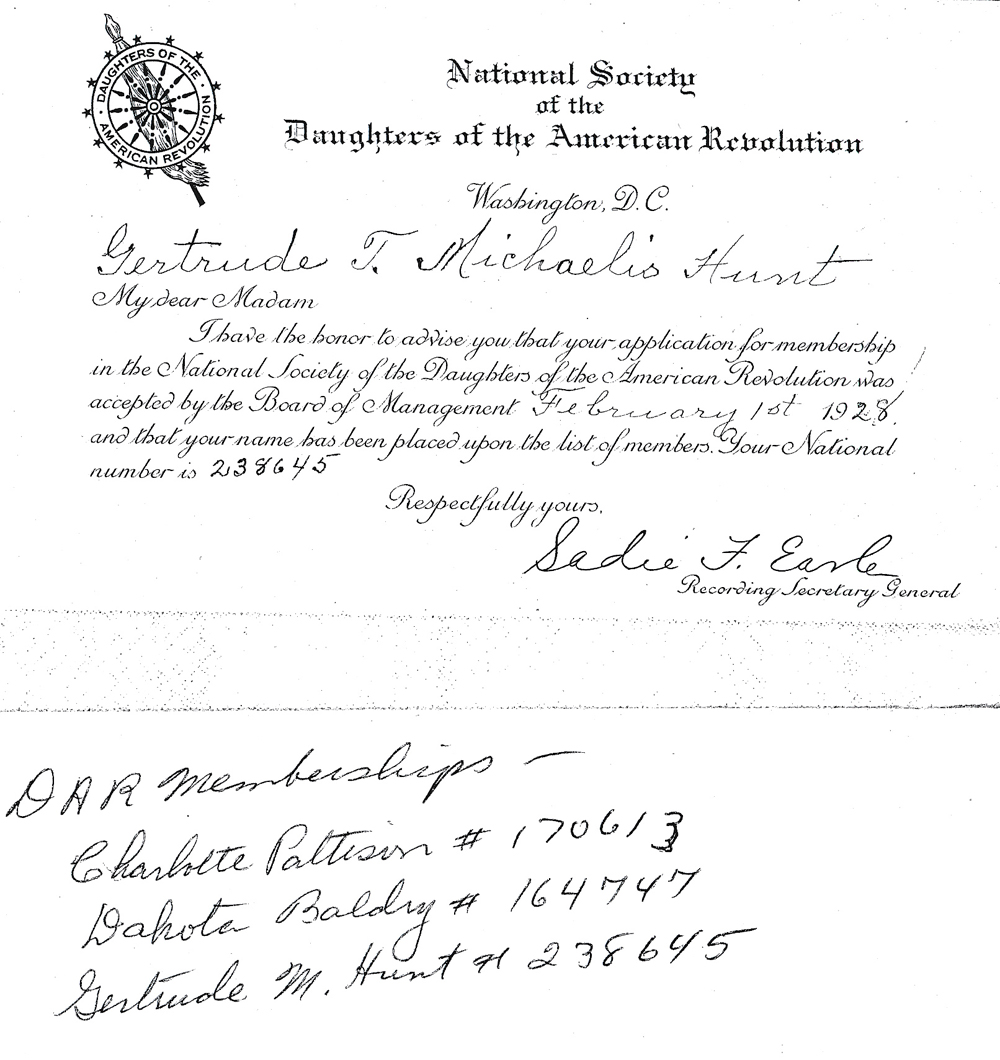 DAUGHTERS OF THE
AMERICAN REVOLUTION
National Society
of the
Daughters of the American Revolution
Washington, D.C.
Gertrude T. Michaelis Hunt
My dear Madam
I have the honor to advise you that your application for membership
in the National Society of the Daughters of the American Revolution was
accepted by the Board of Management February 1st 1928.
and that your name has been placed upon the list of members. Your National
number is 238645
Respectfully yours,
Sadie F. Earle
Recording Secretary General
DAR Memberships —
Charlotte Pattison # 170613
Dakota Baldry # 164747
Gertrude M. Hunt # 238645